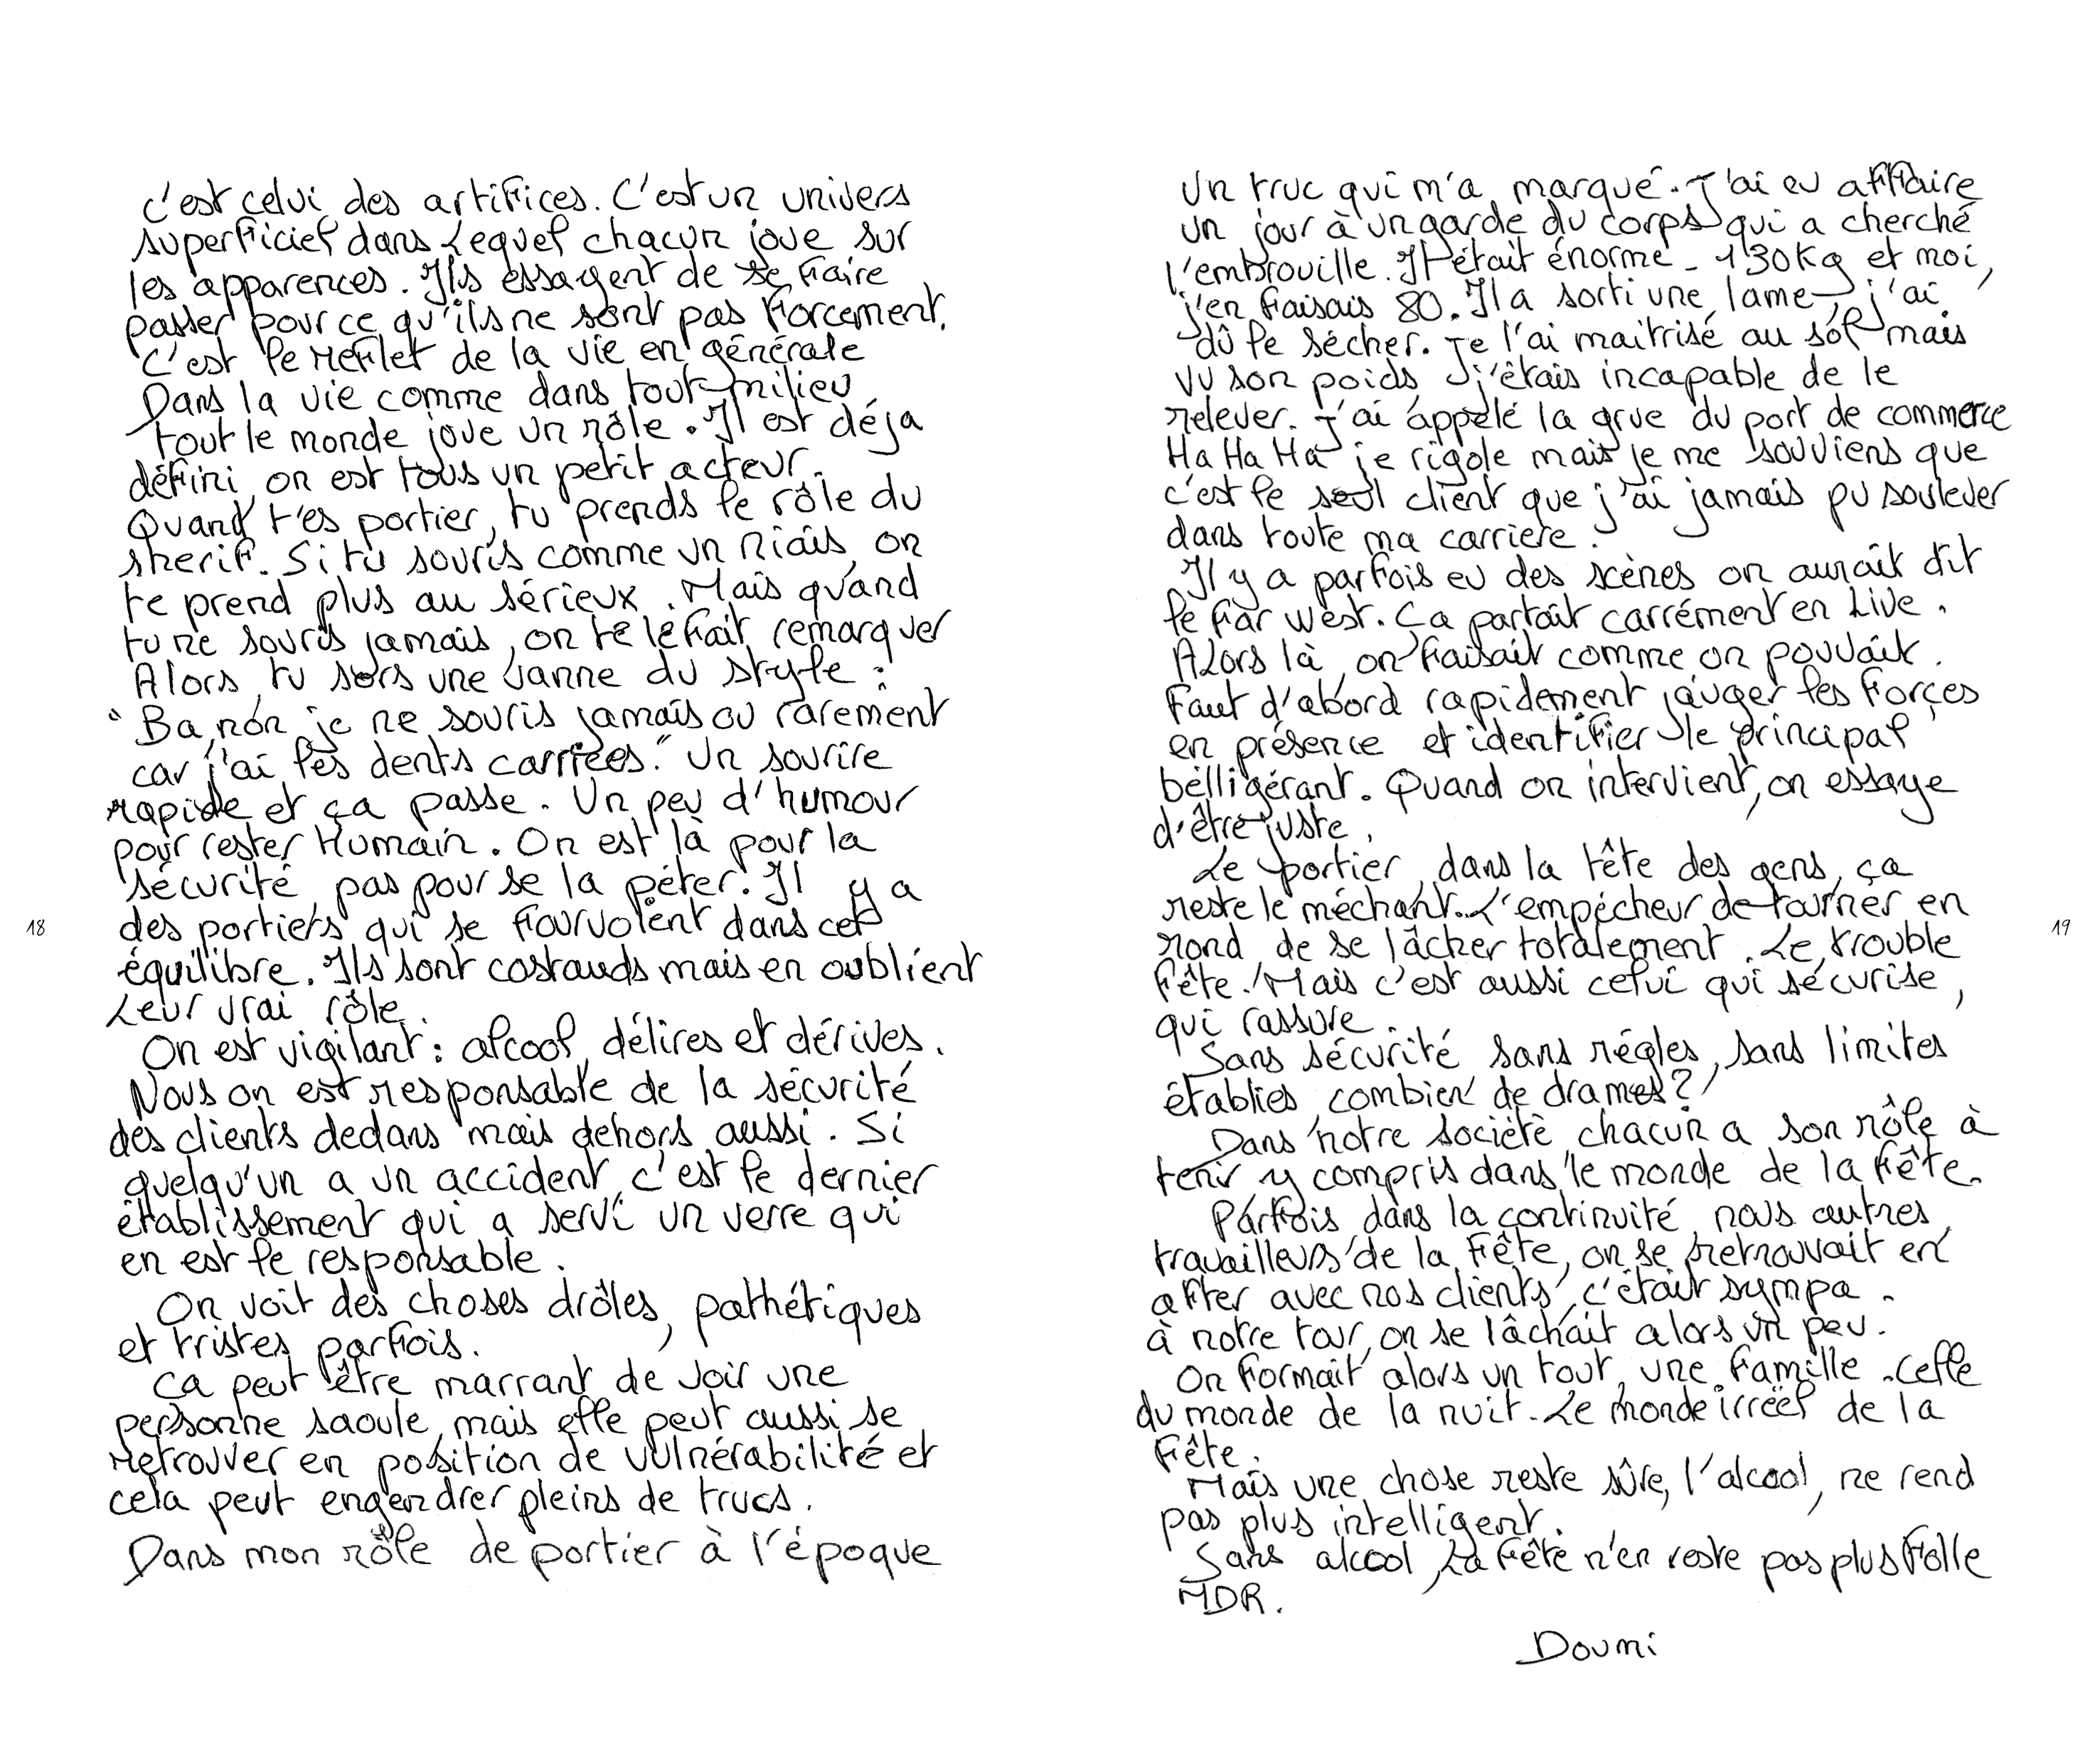 c'est celui des artifices. C'est un univers
superficiel dans Lequel chacun joue sur
les apparences. Ils essayent de se faire
passer pour ce qu'ils ne sont pas forcement.
C'est le reflet de la vie en générale
Dans la vie comme dans tout milieu
tout le monde joue un rôle. Il est déja
défini, on est tous un petit acteur.
Quand t'es portier, tu prends le rôle du
sherif. Si tu souris comme un niais, on
te prend plus au sérieux. Mais quand
tu ne souris jamais, on te le fait remarquer
Alors, tu sors une vanne du style :
"Ba, non, je ne souris jamais ou rarement
car j'ai les dents carriées." Un sourire
rapide et ça passe. Un peu d'humour
pour rester Humain. On est là pour la
sécurité, pas pour se la péter. Il y a
des portiers qui se fourvoient dans cet
équilibre. Ils sont costauds mais en oublient
Leur vrai rôle.
On est vigilant : alcool, délires et dérives.
Nous on est responsable de la sécurité
des clients dedans mais dehors aussi. Si
quelqu'un a un accident, c'est le dernier
établissement qui a servi un verre qui
en est le responsable.
On voit des choses drôles, pathétiques
et tristes parfois.
Ca peut être marrant de voir une
personne saoule, mais elle peut aussi se
retrouver en position de vulnérabilité et
cela peut engendrer pleins de trucs.
Dans mon rôle de portier à l'époque
18
Un truc qui m'a marqué. J'ai eu affaire
un jour à un garde du corps qui a cherché
l'embrouille. Il était énorme - 130kg et moi,
j'en faisais 80. Il a sorti une lame, j'ai
dû le sécher. Je l'ai maitrisé au sol mais
vu son poids, j'étais incapable de le
relever. J'ai appelé la grue du port de commerce
Ha Ha Ha je rigole mais je me souviens que
c'est le seul client que j'ai jamais pu soulever
dans toute ma carrière.
Il y a parfois eu des scènes on aurait dit
le far west. Ca partait carrément en Live.
Alors là, on faisait comme on pouvait.
Faut d'abord rapidement jauger les forces
en présence et identifier le principal
belligérant. Quand on intervient, on essaye
d'être juste.
Le portier, dans la tête des gens, ça
reste le méchant. L'empêcheur de tourner en
rond, de se lâcker totalement. Le trouble
fête. Mais c'est aussi celui qui sécurise,
qui rassure.
Sans sécurité sans régles, sans limites
établies combien de drames?
Dans notre société chacun a son rôle à
tenir y compris dans le monde de la fête.
Parfois dans la continuité, nous autres,
travailleurs de la fête, on se retrouvait en
after avec nos clients, c'était sympa.
à notre tour, on se lâchait alors un peu.
On formait alors un tout, une famille. Celle
du monde de la nuit. Le monde irréel de la
fête.
Mais une chose reste sûre, l'alcool, ne rend
pas plus intelligent.
Sans alcool, La fête n'en reste pas plus folle
MDR.
Doumi
19